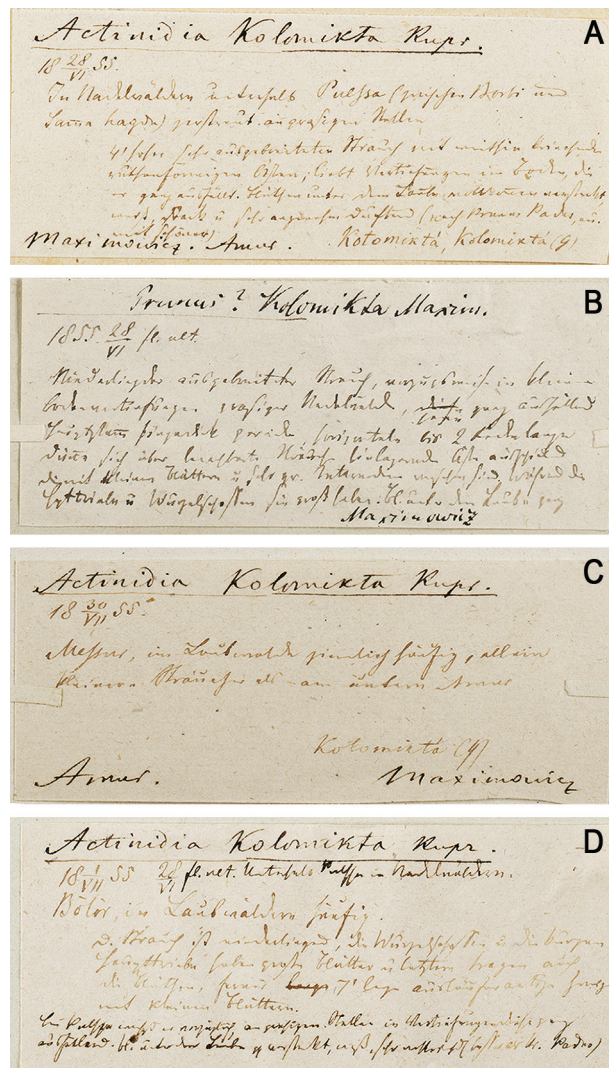 Actinidia Kolomikta Rupr.
A
18 28/VI 55.
In Nadelwäldern unterhalb Pulssa (zwischen Borbi und
zerstreut an grasigen Stellen
4' hoher sehr ausgebreiteter Strauch mit weithin kriechenden
ruthenförmigen Ästen; liebt Vertiefungen im Boden, die
er ganz ausfüllt. Blüthen unter dem Laube vollkommen versteckt
weiß, stark u sehr angenehm duftend (nach Prunus Padus, nur
schöner)
Maximowicz. Amur. Kotomiktá, Kolomiktá (G)
Prunus? Kolomikta Maxim.
B
1855 28/VI fl. alt.
Niederliegender ausgebreiteter Strauch, vorzugsweise in kleinen
Bodenvertiefungen grasiger Nadelwälder, ganz ausfüllend
Hauptstamm fingerdick gerade, horizontale bis 2 lange
dünne sich über benachbarte Sträucher Äste ausschickend
die mit kleinen Blättern u sehr gr. Internodien versehen sind, während die
Haupttriebe u Wurzelschossen sie groß haben. bl. unter dem Laube ganz
Maximowicz
C
Actinidia Kolomikta Rupr.
18 30/VII 55.
Messur, im Laubwalde ziemlich häufig, allein
kleinere Sträucher als am untern Amur
Kotomiktá (G)
Amur. Maximowicz
D
Actinidia Kolomikta Rupr.
18 1/VII 55 28/VI fl. alt. Unterhalb Pulssa in Nadelwäldern.
Bolor, in Laubwäldern häufig.
D. Strauch ist niederliegend, die Wurzelschossen u die kurzen
Haupttriebe haben große Blätter u letztere tragen auch
die Blüthen, ferner 7' lange ausläuferartige Zweige
mit kleinen Blättern.
bei Pulssa wächst er vorzüglich an grasigen Stellen in Vertiefungen diese ganz
ausfüllend. bl. unter dem Laube versteckt, weiß, sehr Padus)